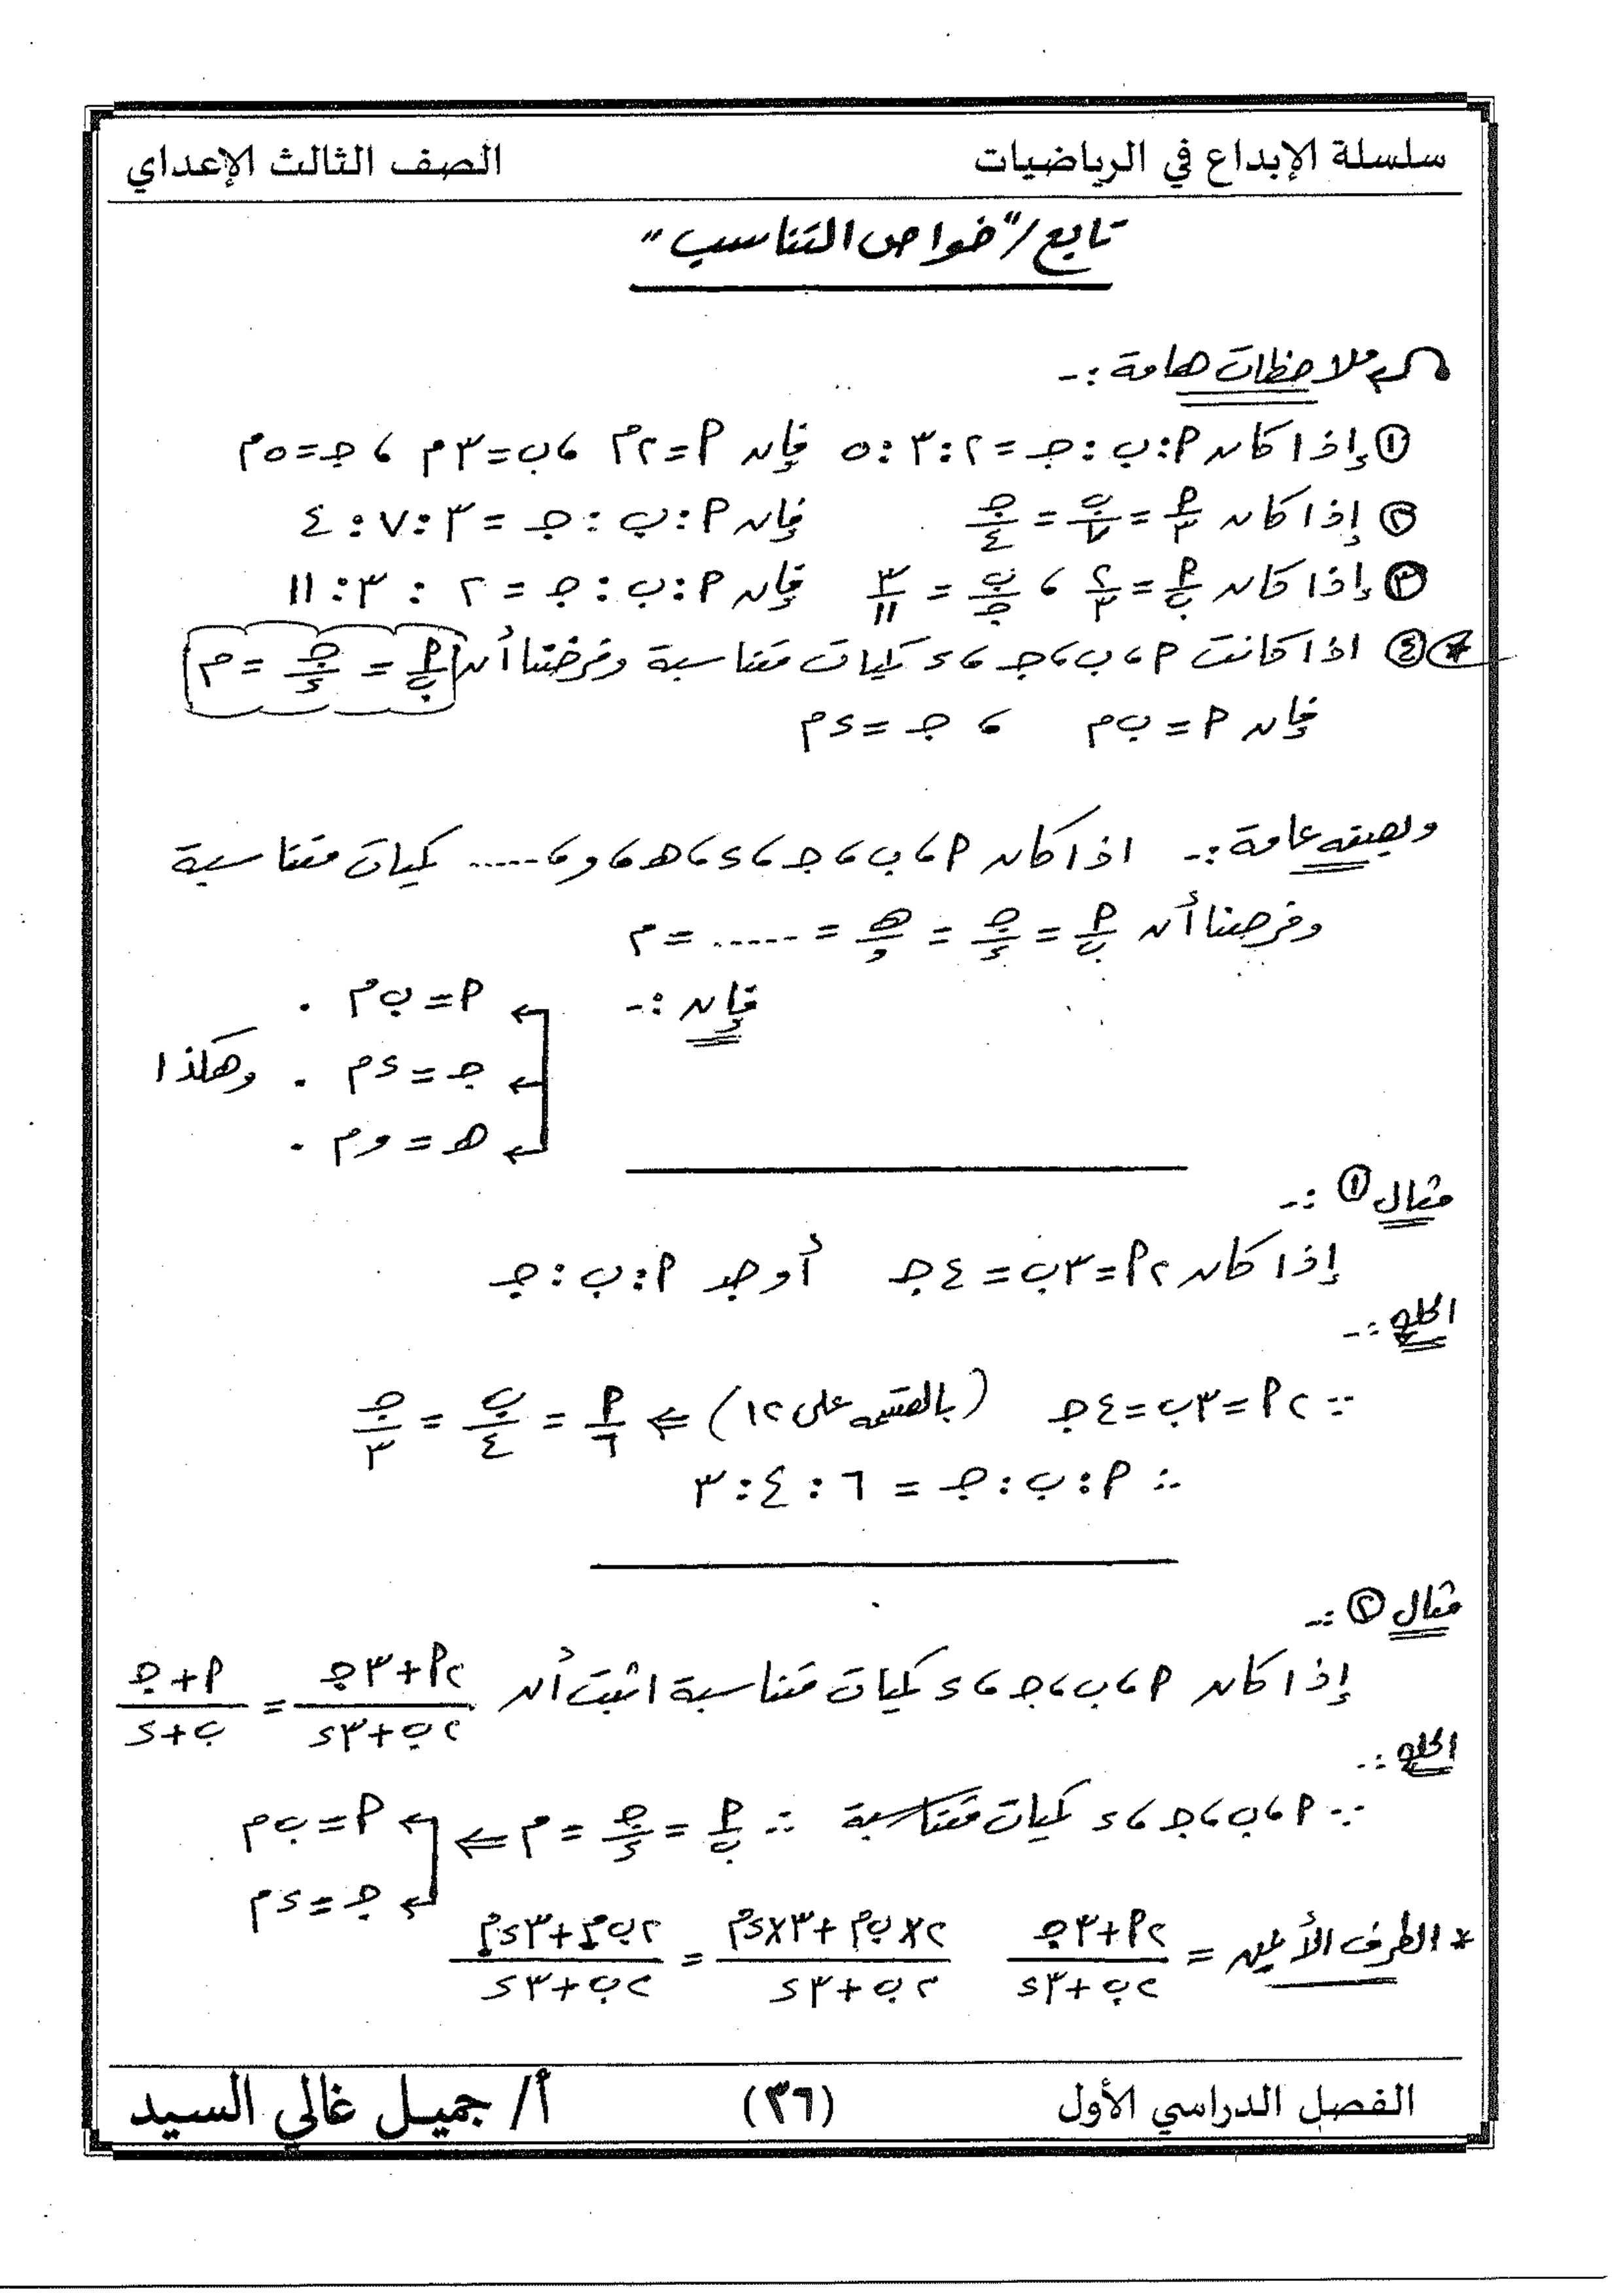 سلسلة الإبداع في الرياضيات
الصف الثالث الإعداي
تابع / "خواص التناسب"
ملاحظات هامة :-
① إذا كان ٢ : ب : ج = ٢ : ٣ : ٥ فإن ٢ = ٢م ، ب = ٣م ، ج = ٥م
② إذا كان ٢/٣ = ب/٧ = ج/٤ فإن ٢ : ب : ج = ٣ : ٧ : ٤
③ إذا كان ٢/ب = ٢/٣ ، ب/ج = ٣/١١ فإن ٢ : ب : ج = ٢ : ٣ : ١١
④ اذا كانت ٢ ، ب ، ج ، د كميات متناسبة وفرضنا أن ٢/ب = ج/د = م
فإن ٢ = ب م ، ج = د م
وبصيغه عامة :- اذا كان ٢ ، ب ، ج ، د ، ه ، و ، ..... كميات متناسبة
وفرضنا أن ٢/ب = ج/د = ه/و = ..... = م
فإن :- ٢ = ب م .
ج = د م . وهكذا
ه = و م .
مثال ① :-
إذا كان ٢٢ = ٣ب = ٤ج أوجد ٢ : ب : ج
الحل :-
∵ ٢٢ = ٣ب = ٤ج (بالقسمه على ١٢) ⇐ ٢/٦ = ب/٤ = ج/٣
∴ ٢ : ب : ج = ٦ : ٤ : ٣
مثال ② :-
إذا كان ٢ ، ب ، ج ، د كميات متناسبة اثبت أن (٢٢ + ٣ج)/(٢ب + ٣د) = (٢ + ج)/(ب + د)
الحل :-
∵ ٢ ، ب ، ج ، د كميات متناسبة ∴ ٢/ب = ج/د = م ⇐ ٢ = ب م
ج = د م
* الطرف الأيمن = (٢٢ + ٣ج)/(٢ب + ٣د) (٢×ب م + ٣×د م)/(٢ب + ٣د) = (٢ب م + ٣د م)/(٢ب + ٣د)
الفصل الدراسي الأول
(٣٦)
أ/ جميل غالي السيد